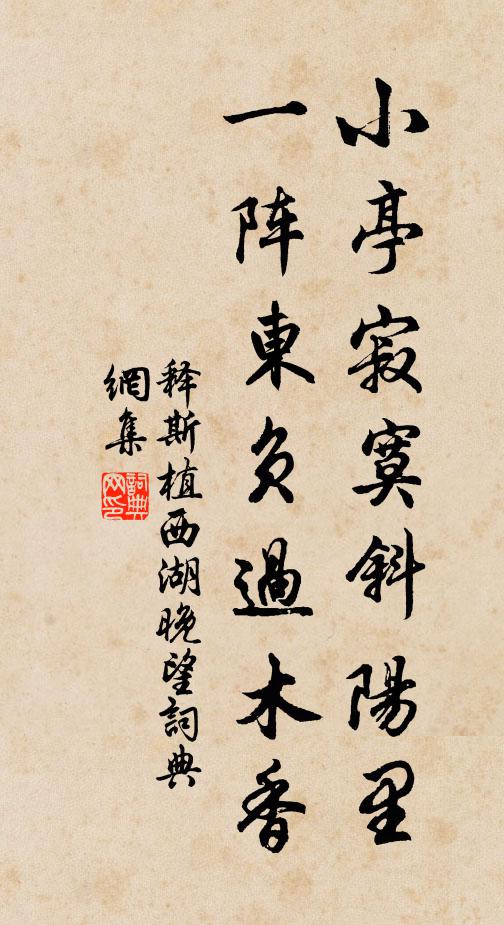 小亭寂寞斜陽里
一阵東過木香
释斯植西湖晚望詞典
網集
詞典
网印